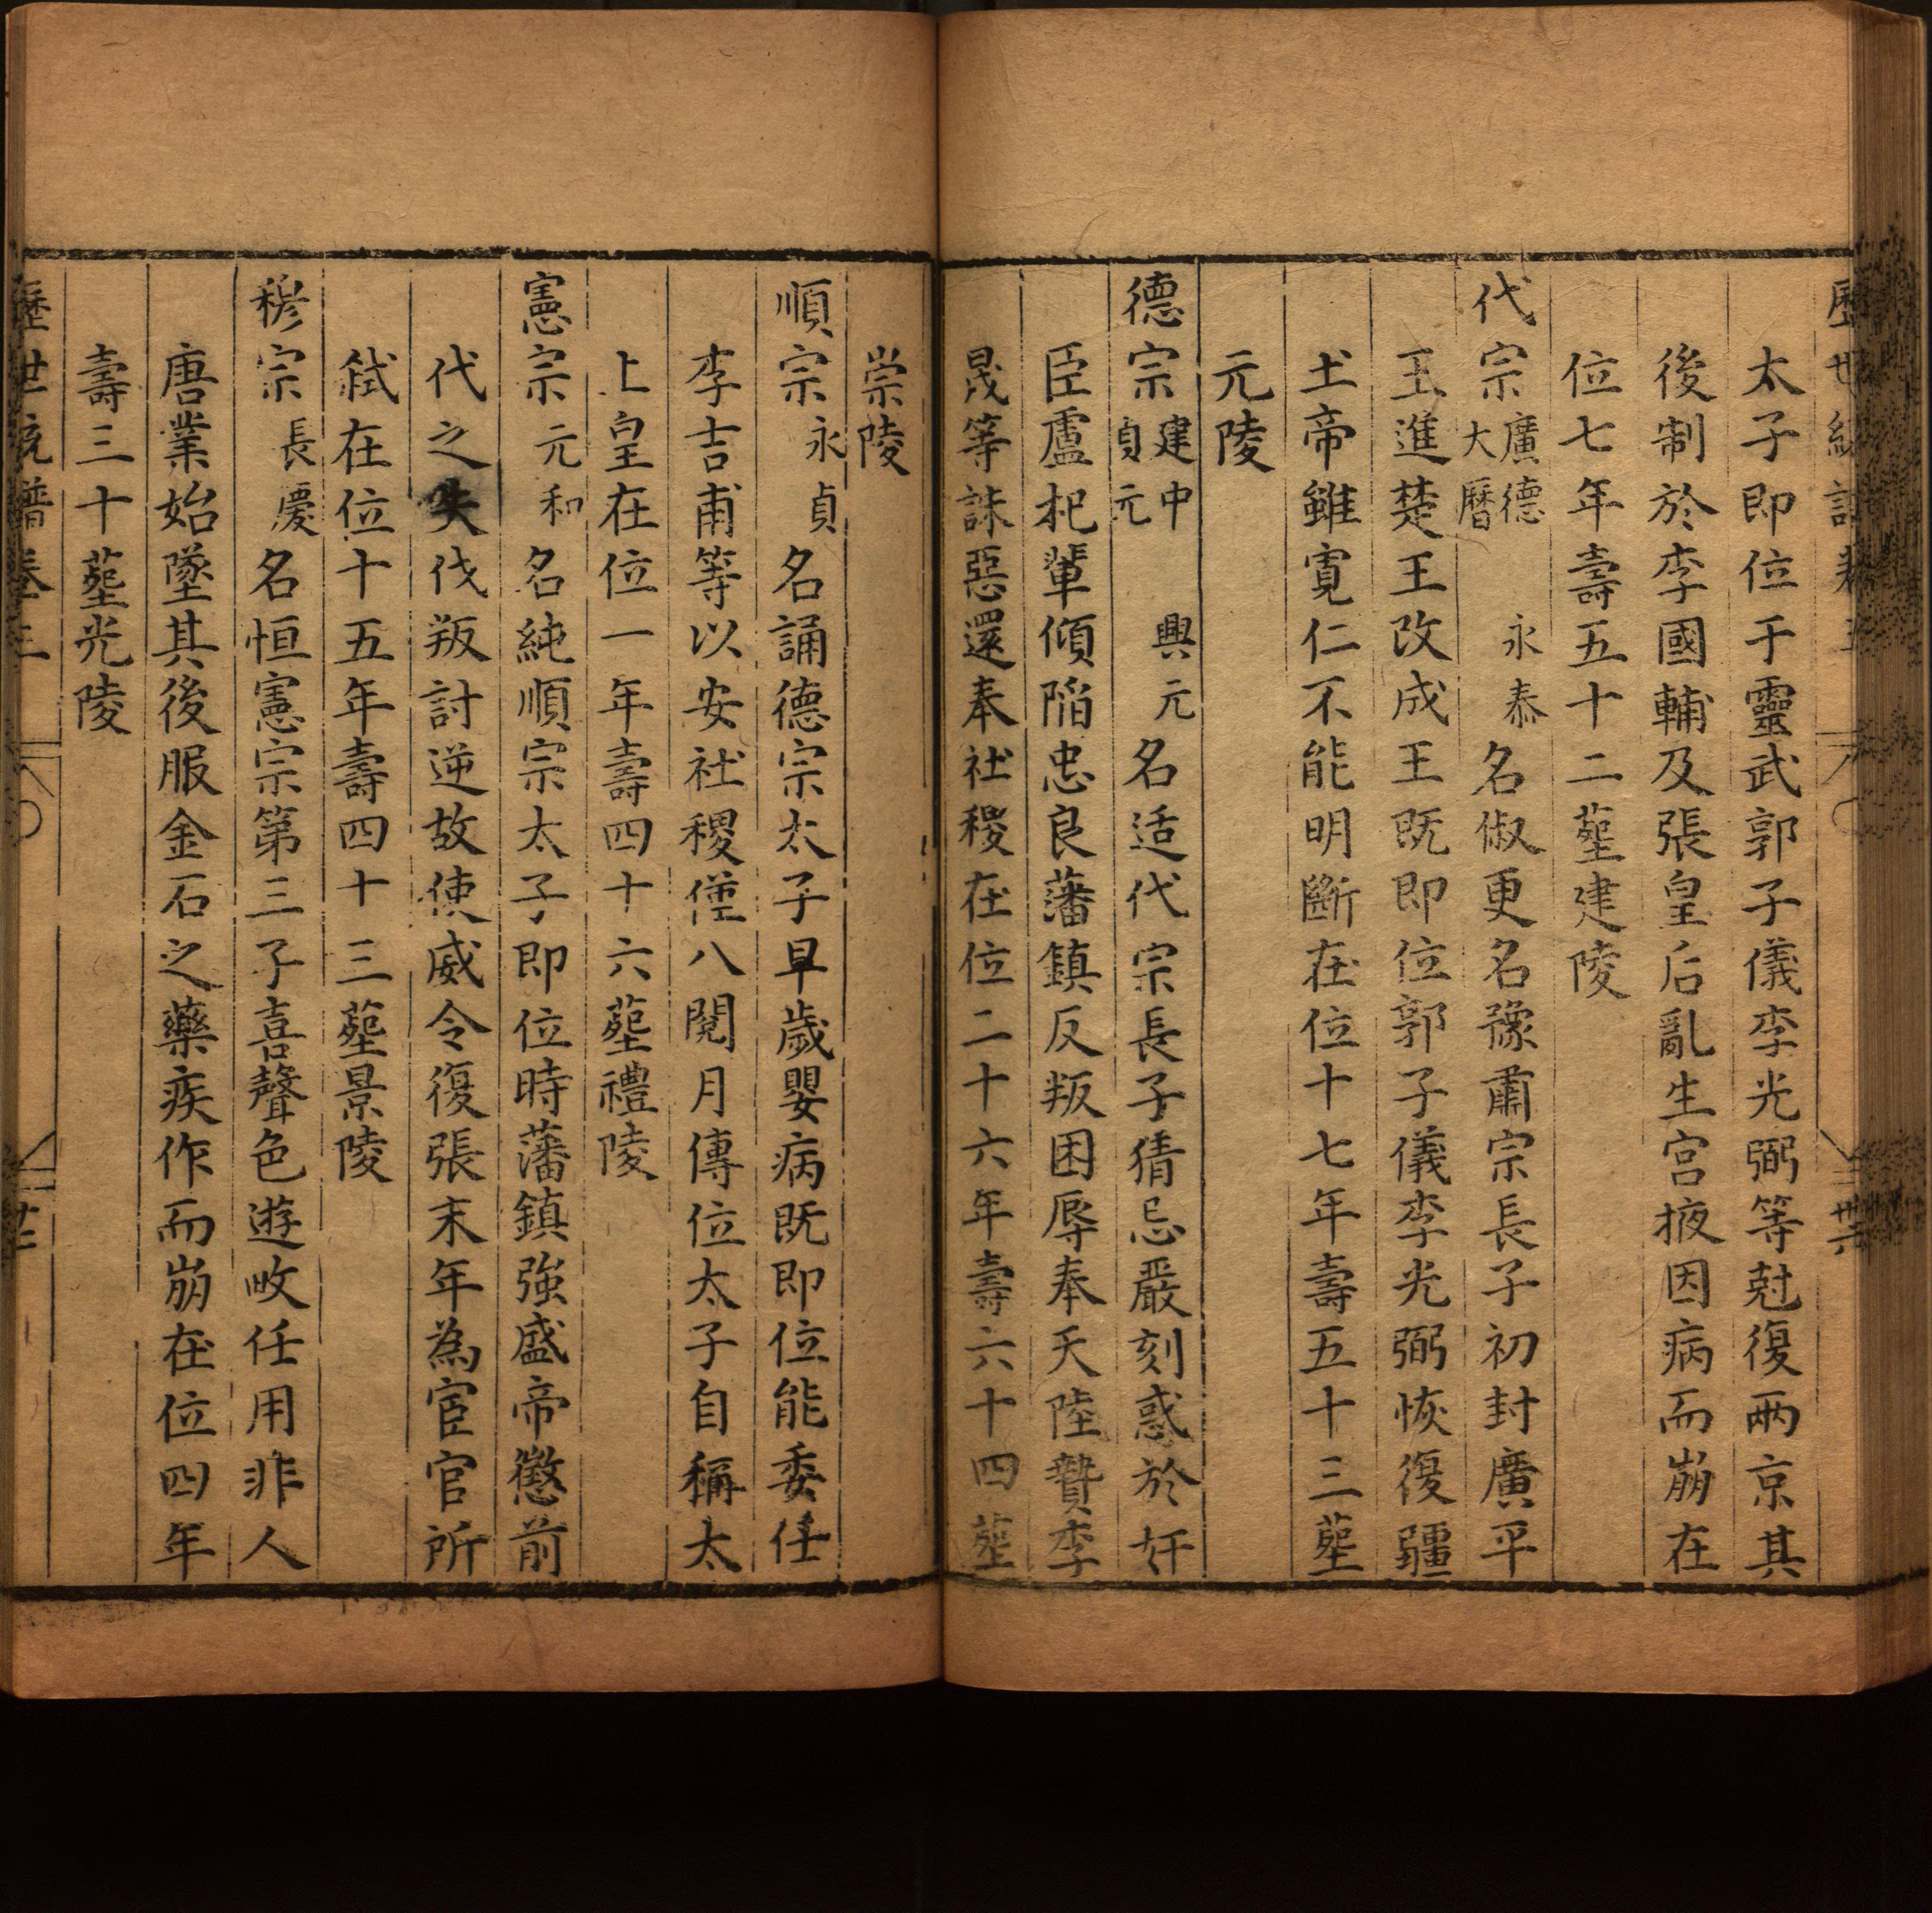 太子即位于靈武郭子儀李光弼等尅復兩京其
後制於李國輔及張皇后亂生宮掖因病而崩在
位七年壽五十二塟建陵
代宗廣德永泰大曆名俶更名豫肅宗長子初封廣平
王進楚王改成王既即位郭子儀李光弼恢復疆
土帝雖寬仁不能明斷在位十七年壽五十三塟
元陵
德宗建中興元貞元名适代宗長子猜忌嚴刻惑於奸
臣盧杞輩傾陷忠良藩鎮反叛困辱奉天陸贄李
晟等誅惡還奉社稷在位二十六年壽六十四塟
崇陵
順宗永貞名誦德宗太子早歲嬰病既即位能委任
李吉甫等以安社稷僅八閱月傳位太子自稱太
上皇在位一年壽四十六塟禮陵
憲宗元和名純順宗太子即位時藩鎮強盛帝懲前
代之失伐叛討逆故使威令復張末年為宦官所
弑在位十五年壽四十三塟景陵
穆宗長慶名恒憲宗第三子喜聲色遊畋任用非人
唐業始墜其後服金石之藥疾作而崩在位四年
壽三十塟光陵
歷世統譜卷三